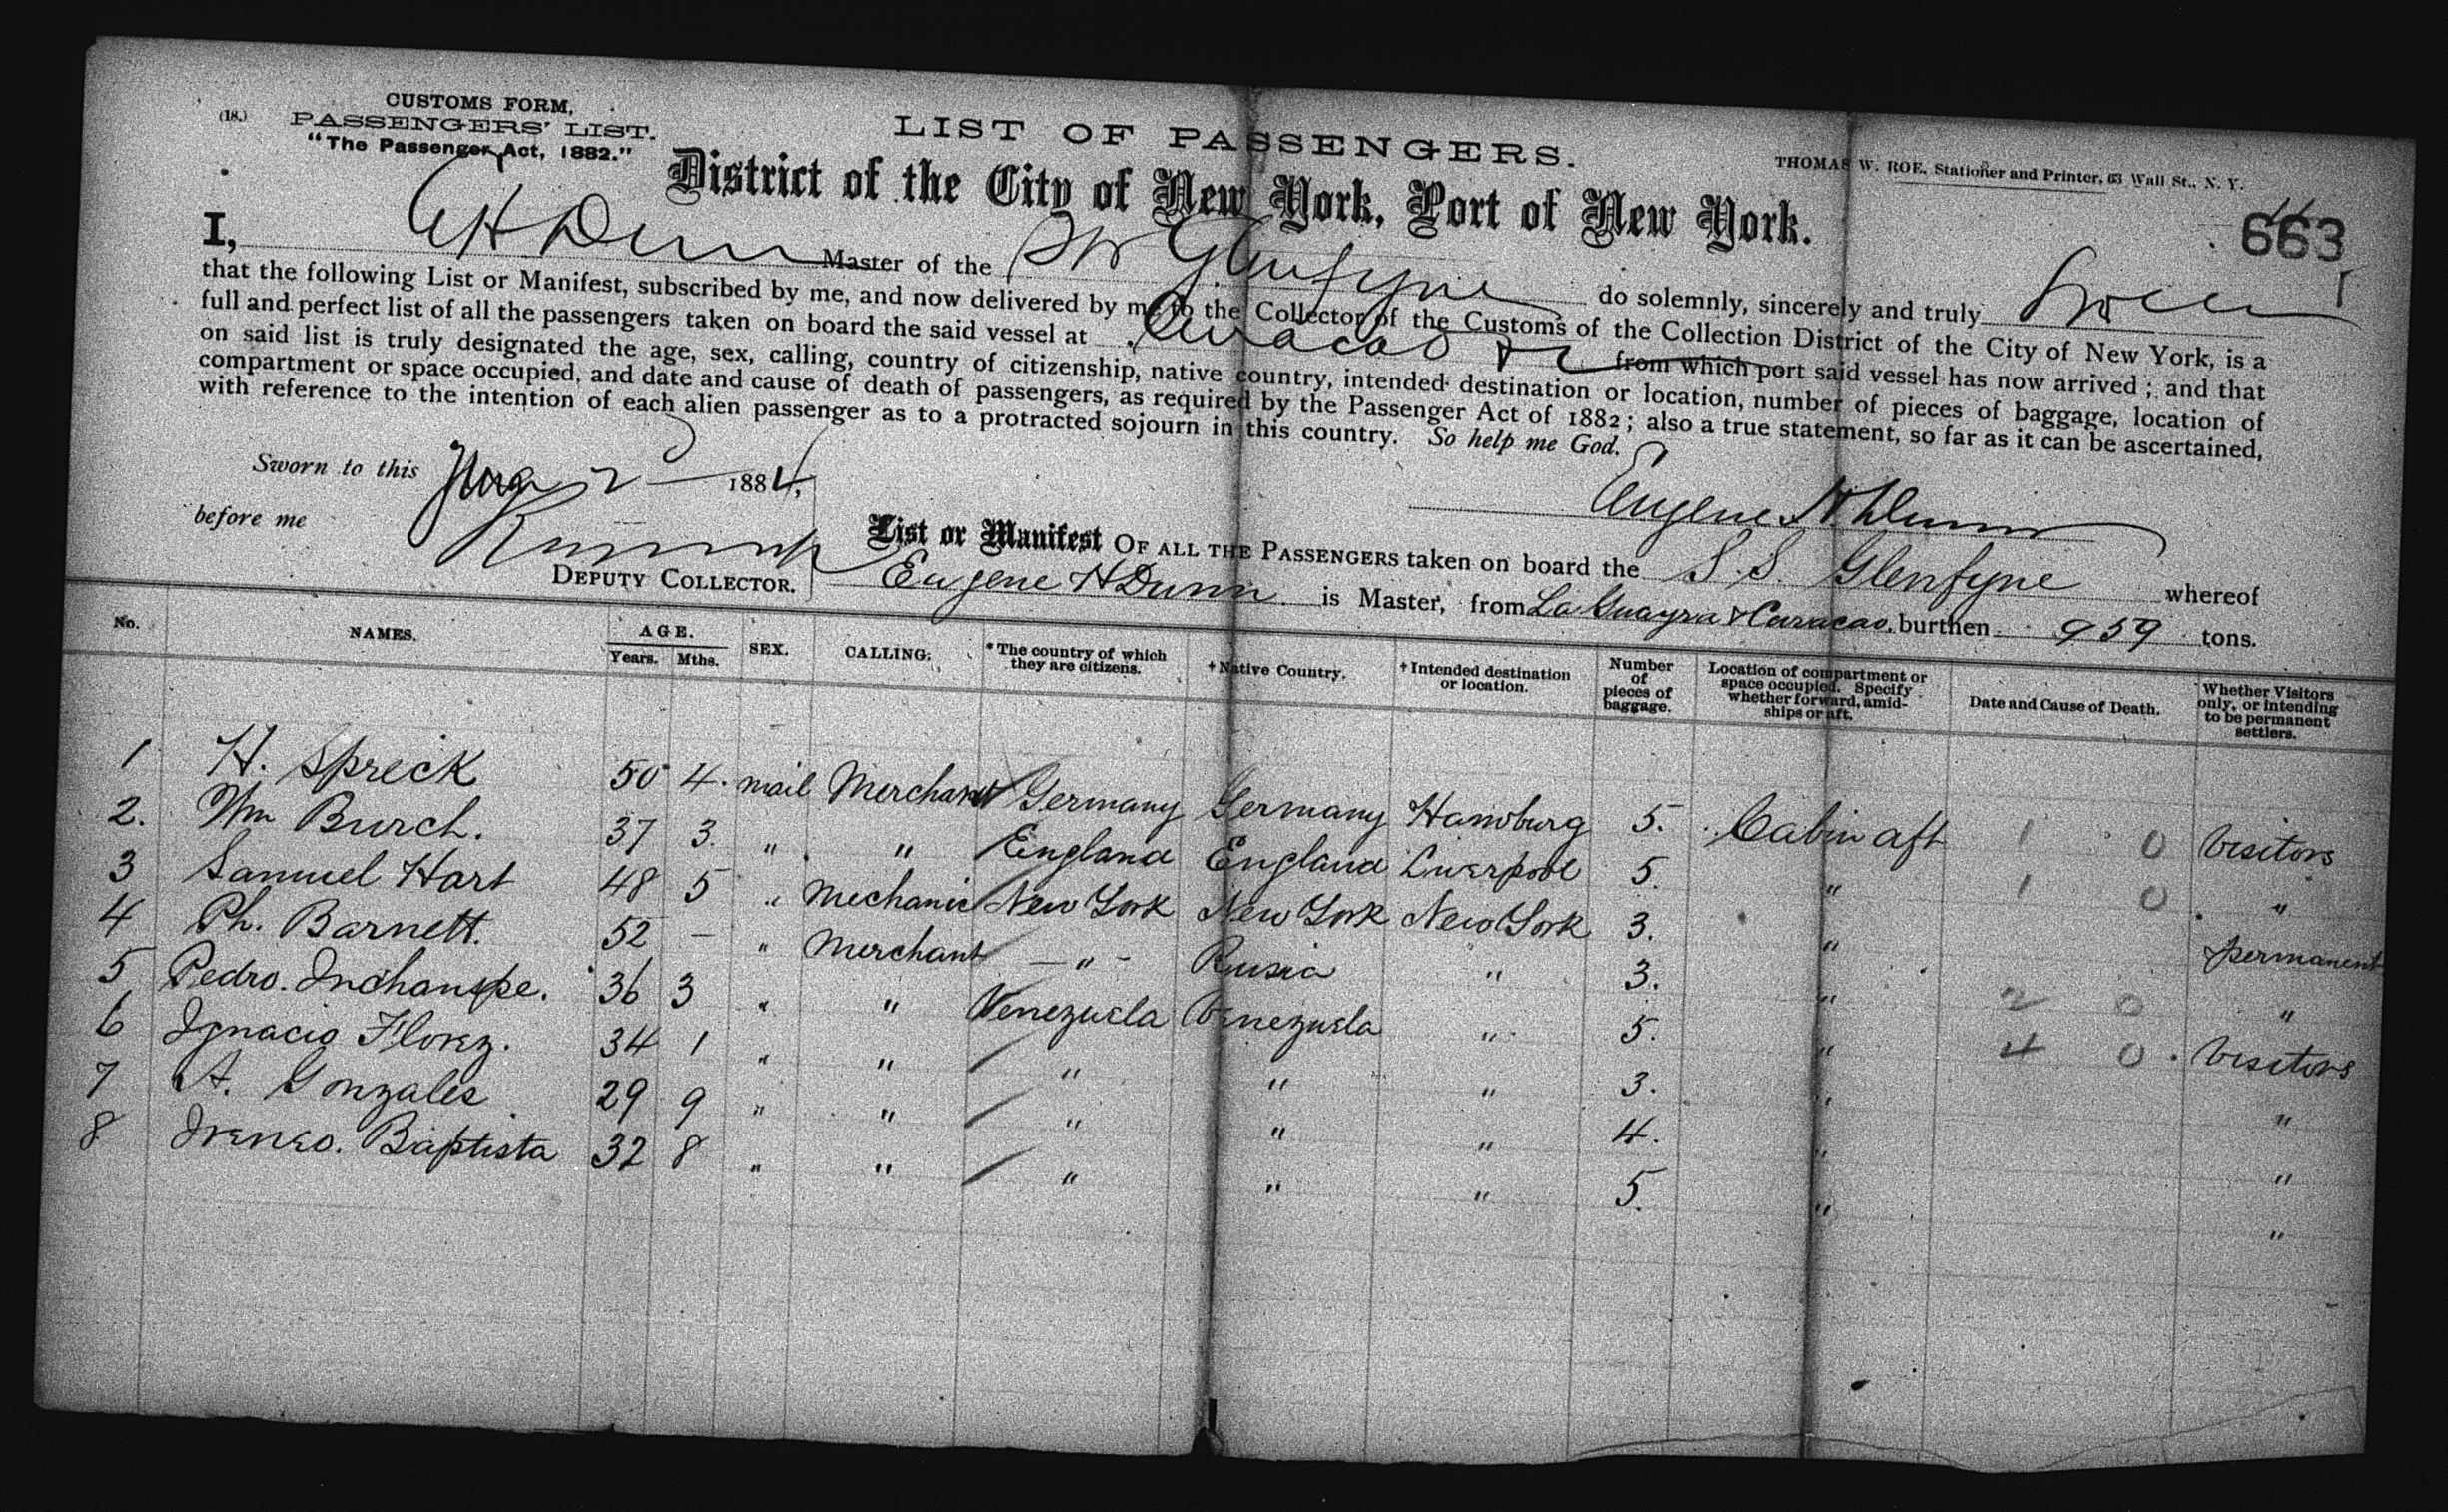 (18.)
CUSTOMS FORM,
PASSENGERS' LIST.
"The Passenger Act, 1882."
LIST OF PASSENGERS.
THOMAS W. ROE, Stationer and Printer, 63 Wall St., N. Y.
District of the City of New York, Port of New York.
663
I, E H Dunn Master of the Str Glenfyne do solemnly, sincerely and truly Swear
that the following List or Manifest, subscribed by me, and now delivered by me to the Collector of the Customs of the Collection District of the City of New York, is a
full and perfect list of all the passengers taken on board the said vessel at Curacao &c from which port said vessel has now arrived; and that
on said list is truly designated the age, sex, calling, country of citizenship, native country, intended destination or location, number of pieces of baggage, location of
compartment or space occupied, and date and cause of death of passengers, as required by the Passenger Act of 1882; also a true statement, so far as it can be ascertained,
with reference to the intention of each alien passenger as to a protracted sojourn in this country. So help me God.
Sworn to this 2 1884,
Eugene H Dunn
before me
DEPUTY COLLECTOR.
List or Manifest OF ALL THE PASSENGERS taken on board the S.S. Glenfyne whereof
Eugene H Dunn is Master, from La Guayra & Curacao, burthen 959 tons.
No. NAMES. AGE. Years. Mths. SEX. CALLING. *The country of which they are citizens. †Native Country. †Intended destination or location. Number of pieces of baggage. Location of compartment or space occupied. Specify whether forward, amidships or aft. Date and Cause of Death. Whether Visitors only, or intending to be permanent settlers.
1 H. Spreck 50 4. mail Merchant Germany Germany Hamburg 5. Cabin aft 1 0 Visitors
2. Wm Burch. 37 3. " " England England Liverpool 5. " 1 0 "
3 Samuel Hart 48 5 " Mechanic New York New York New York 3. " permanent
4 Ph. Barnett. 52 - " Merchant - " - Rusia " 3. " 2 0 "
5 Pedro. Inchauspe. 36 3 " " Venezuela Venezuela " 5. " 4 0 Visitors
6 Ignacio Florez. 34 1 " " " " " 3. " "
7 A. Gonzales 29 9 " " " " " 4. " "
8 Ireneo. Baptista 32 8 " " " " " 5. " "